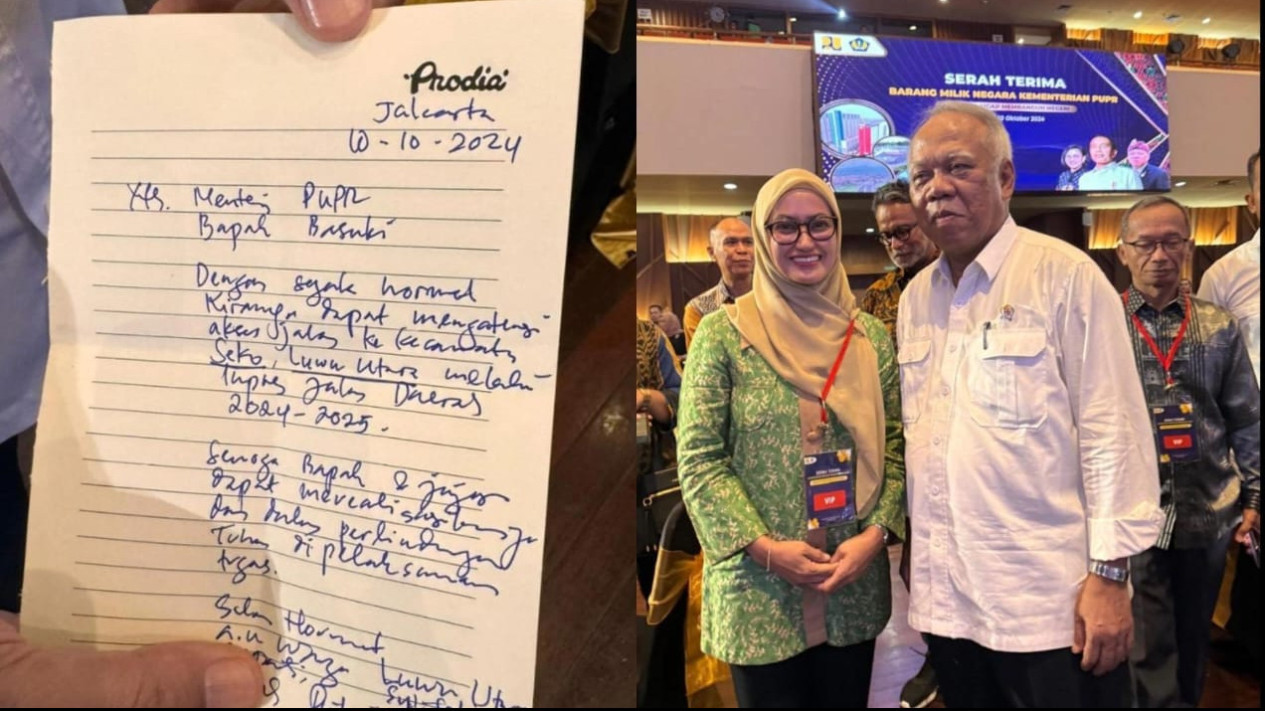 Prodia
Jakarta
10-10-2024
Yth. Menteri PUPR
Bapak Basuki
Dengan segala hormat
Kiranya dapat mengatasi
akses jalan ke Kecamatan
Seko, Luwu Utara melalui
Inpres Jalan Daerah
2024-2025.
Semoga Bapak & jajaran
dapat merealisasikannya
dan dalam perlindungan
Tuhan di pelaksanaan
tugas.
Salam Hormat
a.n Warga Luwu Utara
SERAH TERIMA
BARANG MILIK NEGARA KEMENTERIAN PUPR
MEMBANGUN NEGERI
Oktober 2024
VIP
VIP